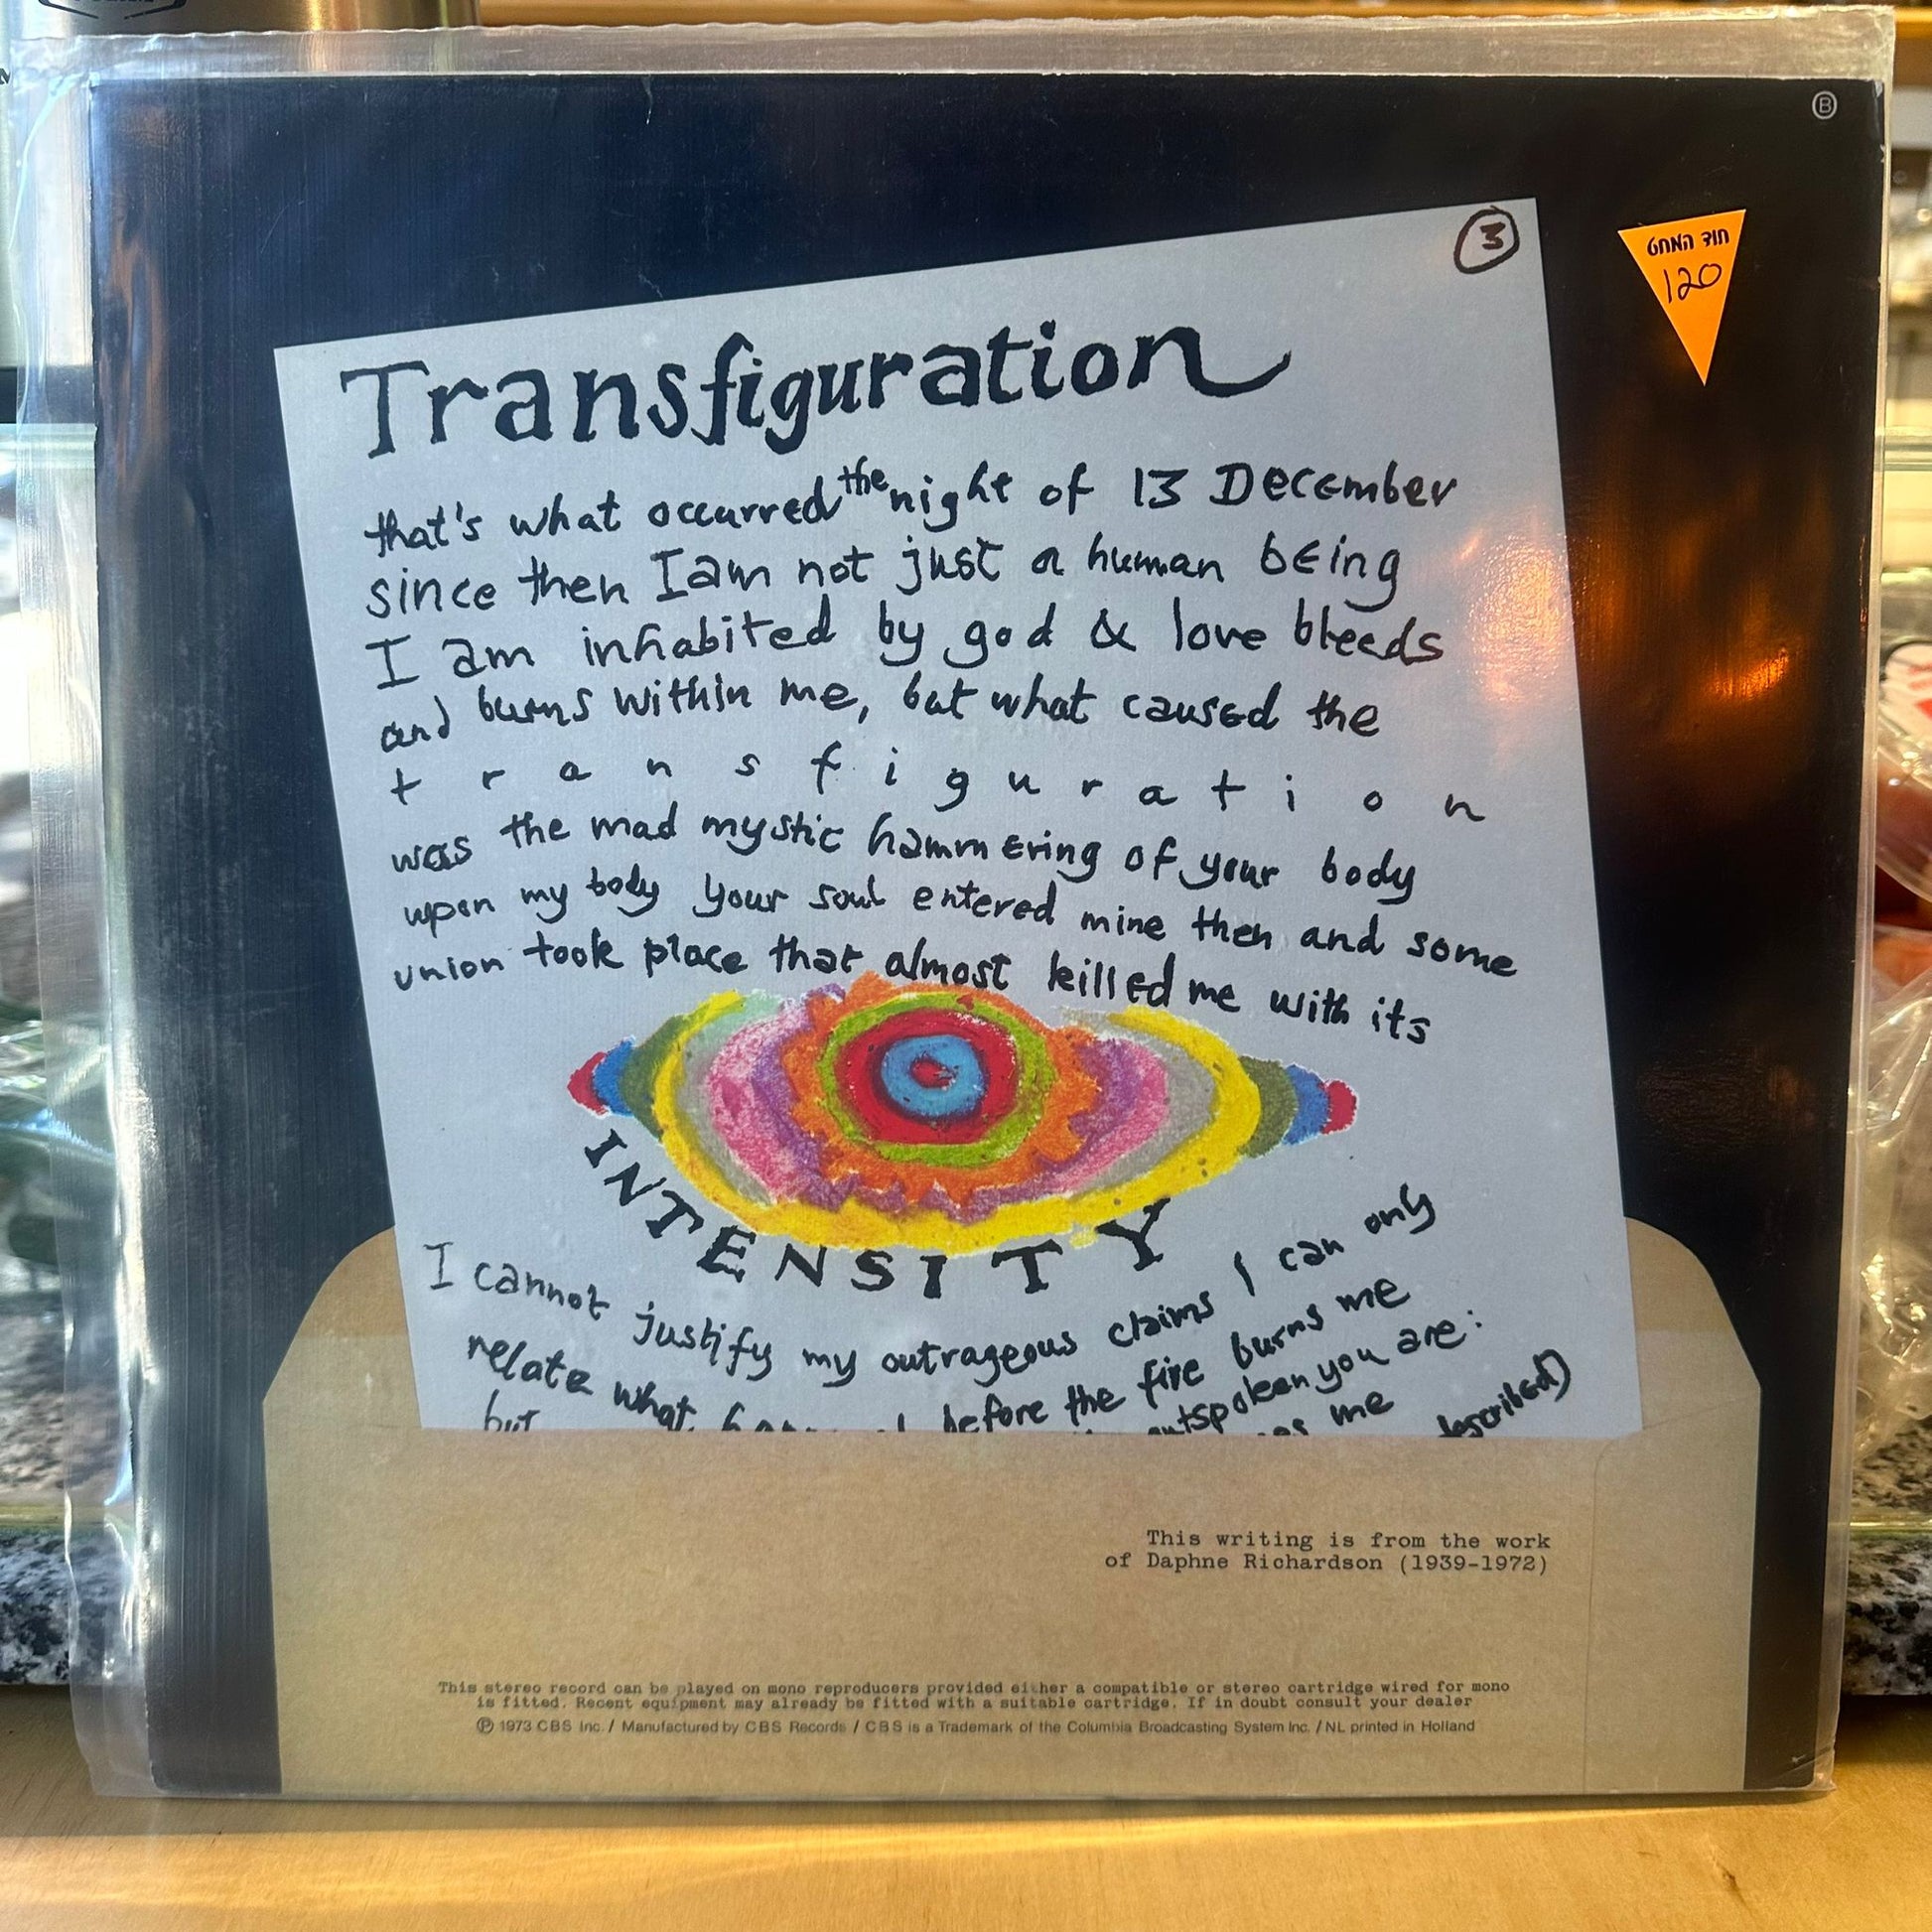 Ⓑ
③
חוד המחט
120
Transfiguration
that's what occurred the night of 13 December
since then I am not just a human being
I am inhabited by god & love bleeds
and burns within me, but what caused the
t r a n s f i g u r a t i o n
was the mad mystic hammering of your body
upon my body your soul entered mine then and some
union took place that almost killed me with its
INTENSITY
I cannot justify my outrageous claims I can only
relate what before the fire burns me
but outspoken you are:
me described)
This writing is from the work
of Daphne Richardson (1939-1972)
This stereo record can be played on mono reproducers provided either a compatible or stereo cartridge wired for mono
is fitted. Recent equipment may already be fitted with a suitable cartridge. If in doubt consult your dealer
℗ 1973 CBS Inc. / Manufactured by CBS Records / CBS is a Trademark of the Columbia Broadcasting System Inc. / NL printed in Holland